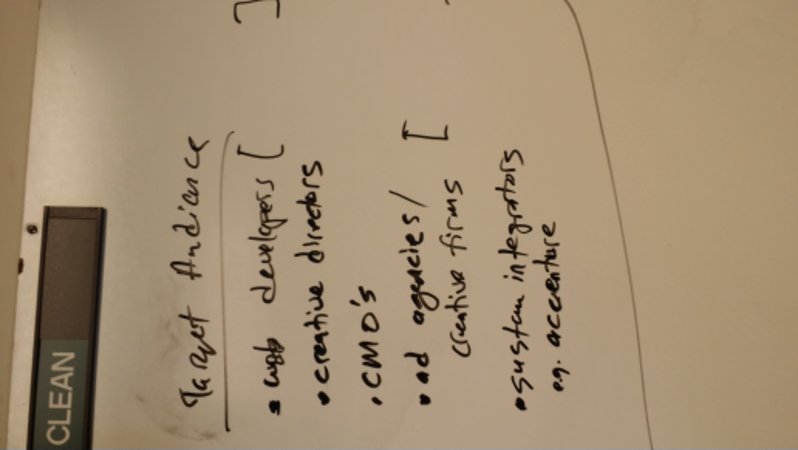 Target Audiance
• web developers [ ]
• creative directors
• CMO's
• ad agencies/ [
creative firms
• sustem integrators
e.g. accenture
CLEAN